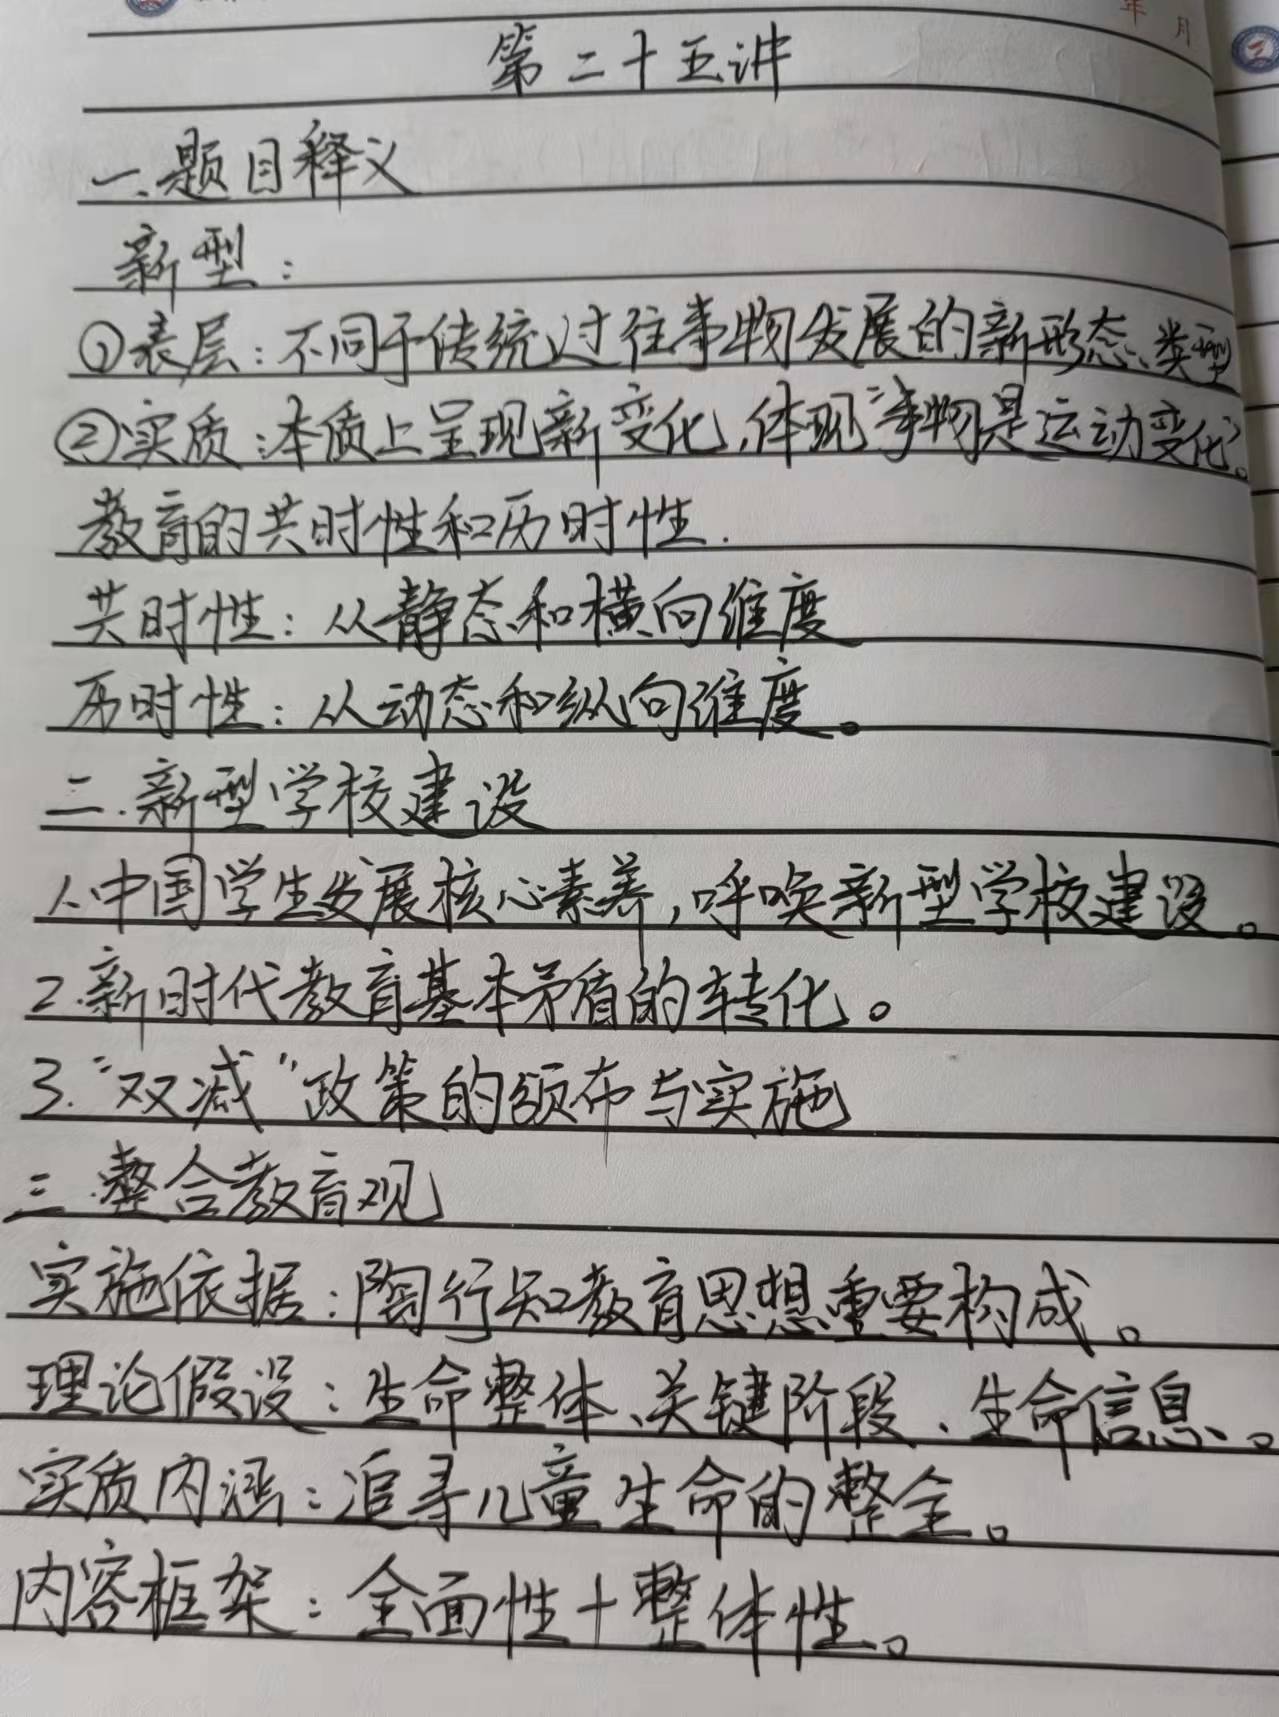 年 月
第二十五讲
一.题目释义
新型：
①表层：不同于传统过往事物发展的新形态、类型
②实质：本质上呈现新变化,体现“事物是运动变化”。
教育的共时性和历时性.
共时性：从静态和横向维度
历时性：从动态和纵向维度。
二.新型学校建设
1.中国学生发展核心素养,呼唤新型学校建设。
2.新时代教育基本矛盾的转化。
3.“双减”政策的颁布与实施
三.整合教育观
实施依据：陶行知教育思想重要构成。
理论假设：生命整体、关键阶段、生命信息。
实质内涵：追寻儿童生命的整全。
内容框架：全面性+整体性。